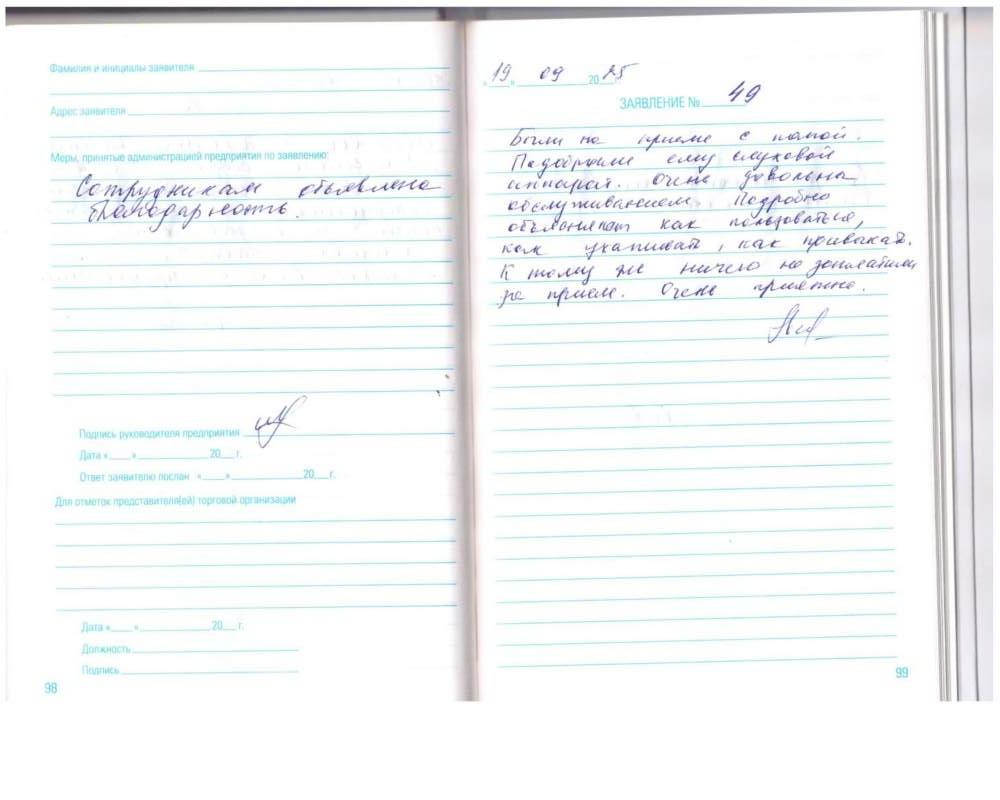 Фамилия и инициалы заявителя
Адрес заявителя
Меры, принятые администрацией предприятия по заявлению:
Сотрудникам объявлена
благодарность.
Подпись руководителя предприятия
Дата «___»____________20___г.
Ответ заявителю послан «___»____________20___г.
Для отметок представителя(ей) торговой организации
Дата «___»____________20___г.
Должность
Подпись
98
«19» 09 2025
ЗАЯВЛЕНИЕ № 49
Были на приеме с папой.
Подобрали ему слуховой
аппарат. Очень довольна
обслуживанием. Подробно
объясняют как пользоваться,
как ухаживать, как привыкать.
К тому же ничего не заплатили
за прием. Очень приятно.
99